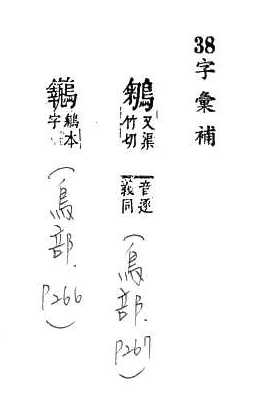 38字彙補
鵴 又渠竹切 音逐義同 (鳥部. P267)
鵴本字 (鳥部. P266)